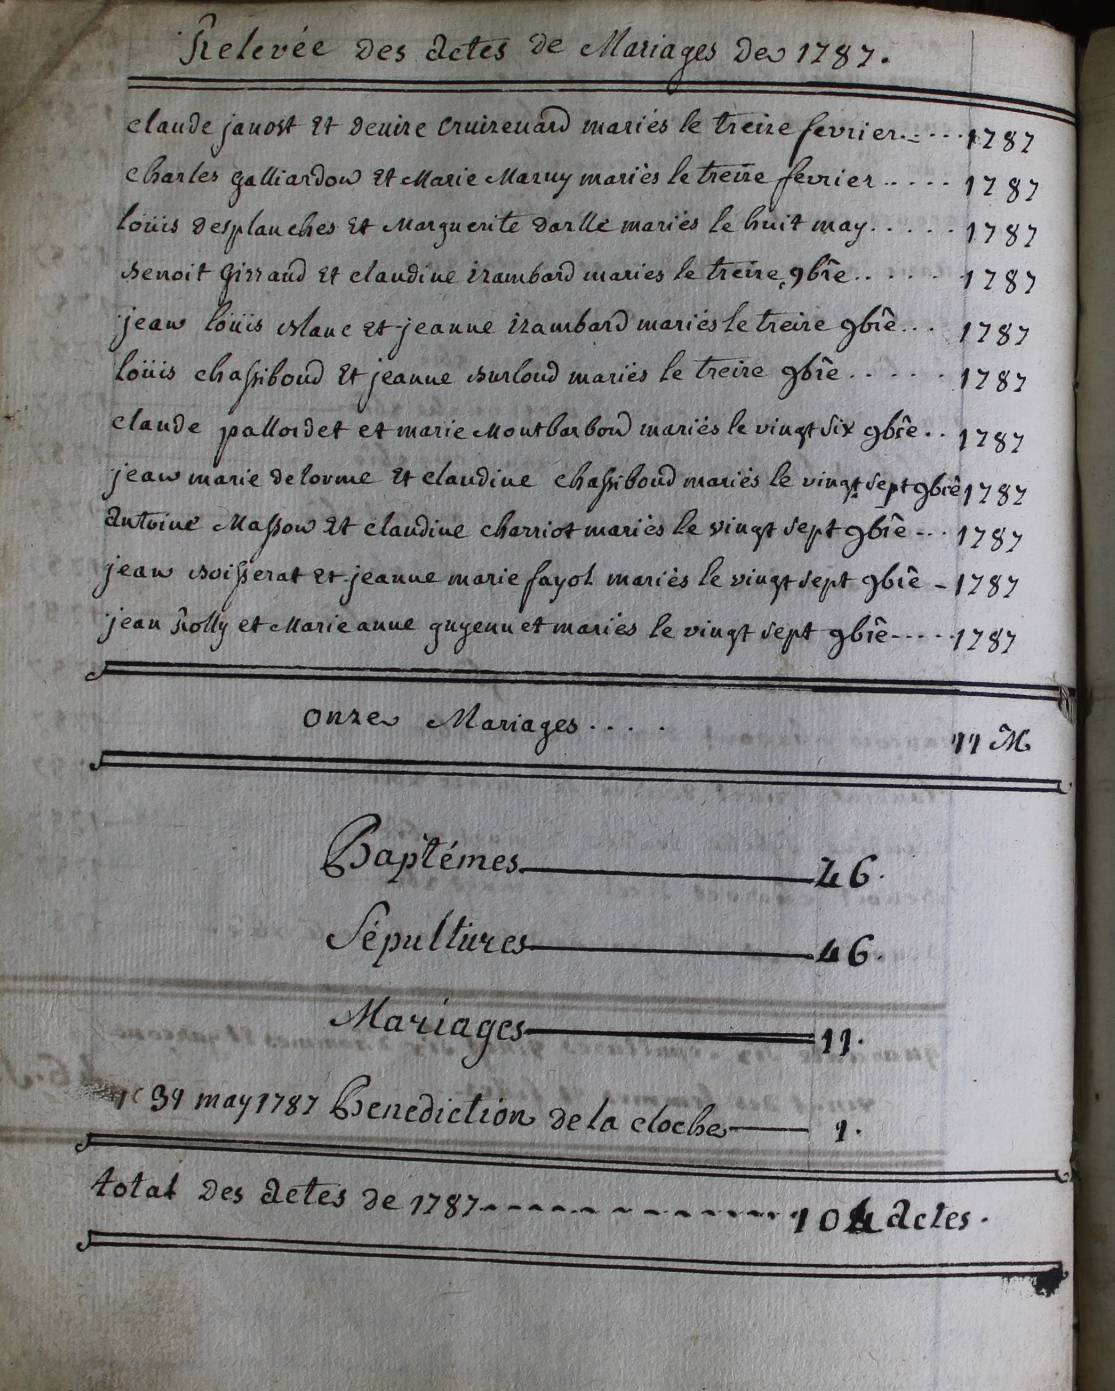 Relevée des actes de Mariages de 1787.
claude janost et denire Cruirenard mariés le treire fevrier..... 1787
charles galliardon et Marie Maruy mariés le treire fevrier..... 1787
loüis desplanches et Marguerite darlle mariés le huit may..... 1787
Benoit girraud et claudine irambard mariés le treire 9bre..... 1787
jean loüis Blanc et jeanne irambard mariés le treire 9bre... 1787
loüis chassiboud et jeanne Burloud mariés le treire 9bre..... 1787
claude pallordet et marie Montbarbon mariés le vingt Six 9bre.. 1787
jean marie delorme et claudine chassiboud mariés le vingt Sept 9bre 1787
antoine Masson et claudine charriot mariés le vingt Sept 9bre --- 1787
jean Boisserat et jeanne marie fayol mariés le vingt Sept 9bre - 1787
jean Rolly et Marie anne guyennet mariés le vingt Sept 9bre ----- 1787
onze Mariages.... 11 M
Baptémes 46.
Sépultures 46.
Mariages 11.
31 may 1787 Benediction de la cloche 1.
total des actes de 1787 104 actes.